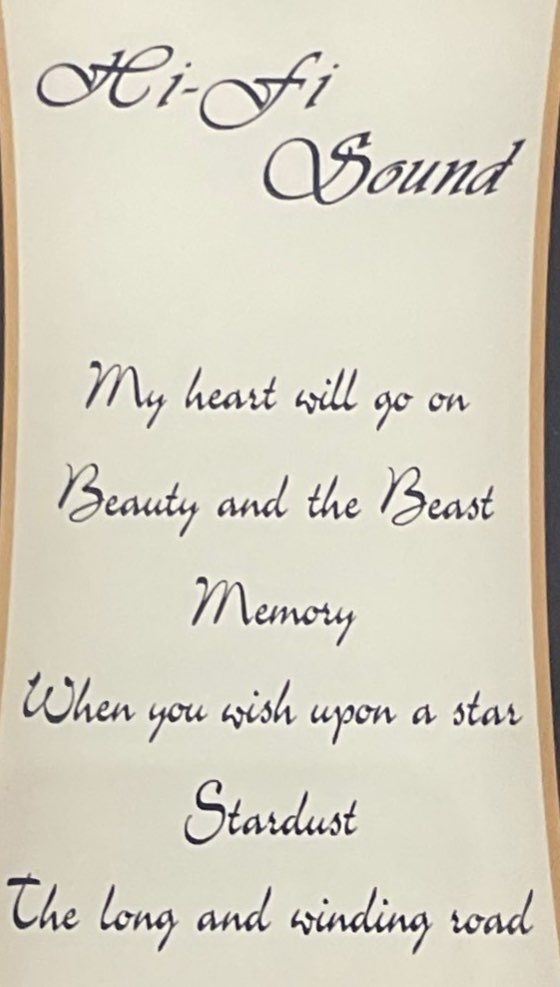 Hi-Fi
Sound
My heart will go on
Beauty and the Beast
Memory
When you wish upon a star
Stardust
The long and winding road